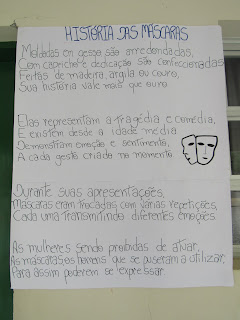 HISTÓRIA DAS MÁSCARAS
Moldadas en gesso são arredondadas,
Com capricho e dedicação são confeccionadas
Feitas de madeira, argila ou couro,
Sua história vale mais que ouro.
Elas representam a tragédia e comédia,
E existem desde a idade média
Demonstram emoção e sentimento,
A cada gesto criado no momento
Durante suas apresentações,
Máscaras eram trocadas com várias repetições,
Cada uma transmitindo diferentes emoções.
As mulheres sendo proibidas de atuar,
As máscaras os homens que se puseram a utilizar,
Para assim poderem se expressar.